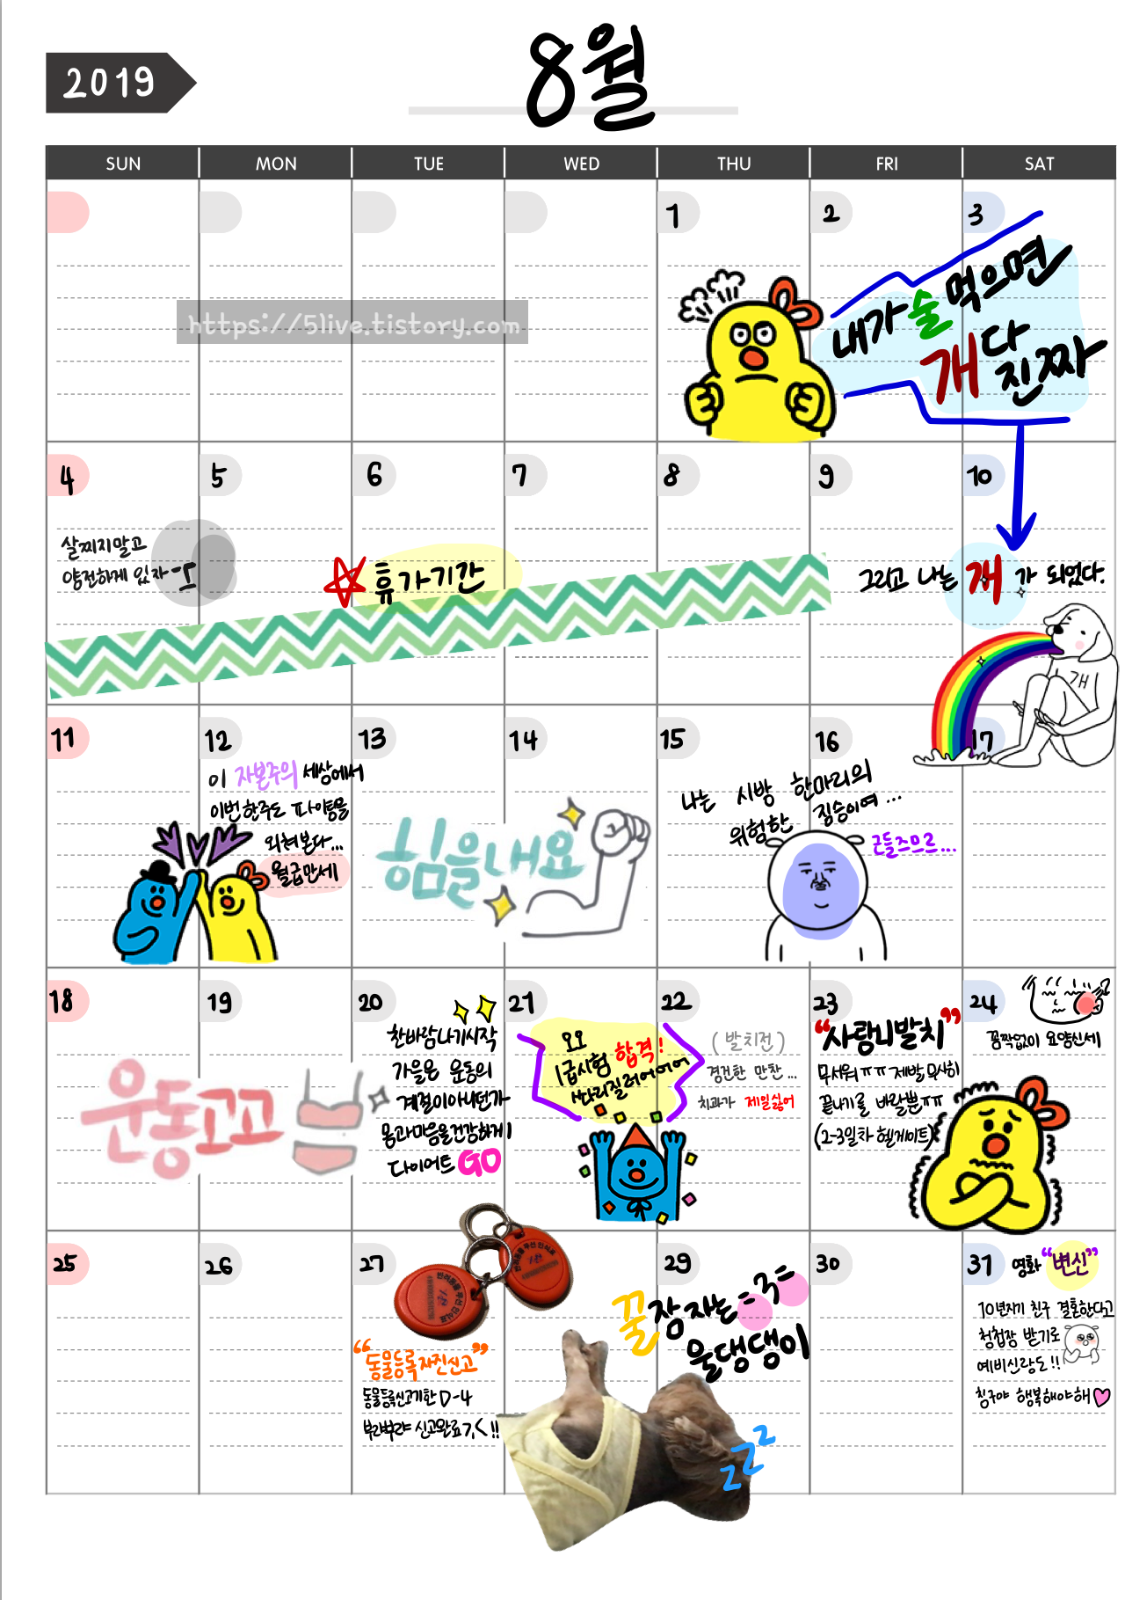 2019
8월
SUN MON TUE WED THU FRI SAT
1 2 3
https://5live.tistory.com
내가 술 먹으면
개다
진짜
4 5 6 7 8 9 10
살찌지말고
얌전하게 있자
휴가기간
그리고 나는 개가 되었다.
개
11 12 13 14 15 16 17
이 자본주의 세상에서
이번 한주도 파이팅을
외쳐본다...
월급만세
힘을내요
나는 시방 한마리의
위험한 짐승이여...
근들즈므르...
18 19 20 21 22 23 24
운동고고
찬바람나기시작
가을은 운동의
계절이아니던가
몸과마음을건강하게
다이어트 GO
오오
1급시험 합격!
싸리질러어어어
(발치전)
경건한 만찬...
치과가 제일싫어
"사랑니발치"
무서워ㅠㅠ 제발 무사히
끝나기를 바랄뿐ㅠㅠ
(2-3일차 헬게이트)
꼼짝없이 요양신세
25 26 27 29 30 31
"동물등록자진신고"
동물등록신고기한 D-4
부랴부랴 신고완료ㄱㄱ!!
꿀잠자는=3=
울댕댕이
zzz
영화 "변신"
10년지기 친구 결혼한다고
청첩장 받기로
예비신랑도!!
칭구야 행복해야해